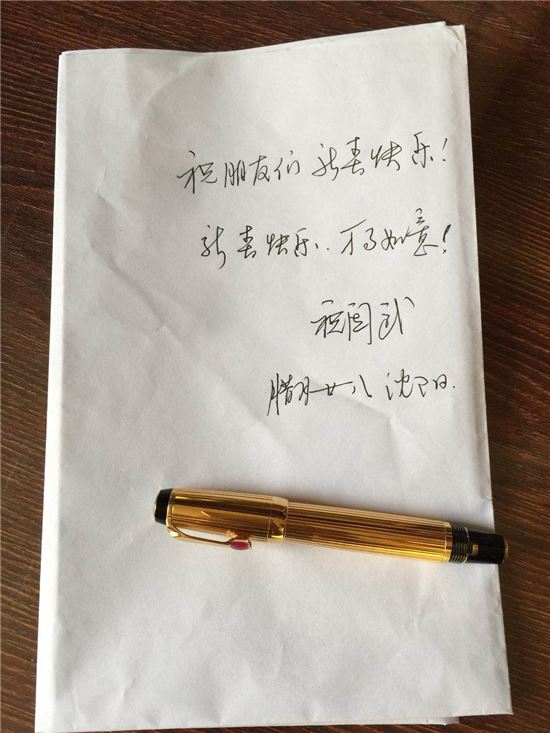 祝朋友们 新春快乐!
新春快乐.. 万事如意!
祝国武
腊月廿八 沈阳.